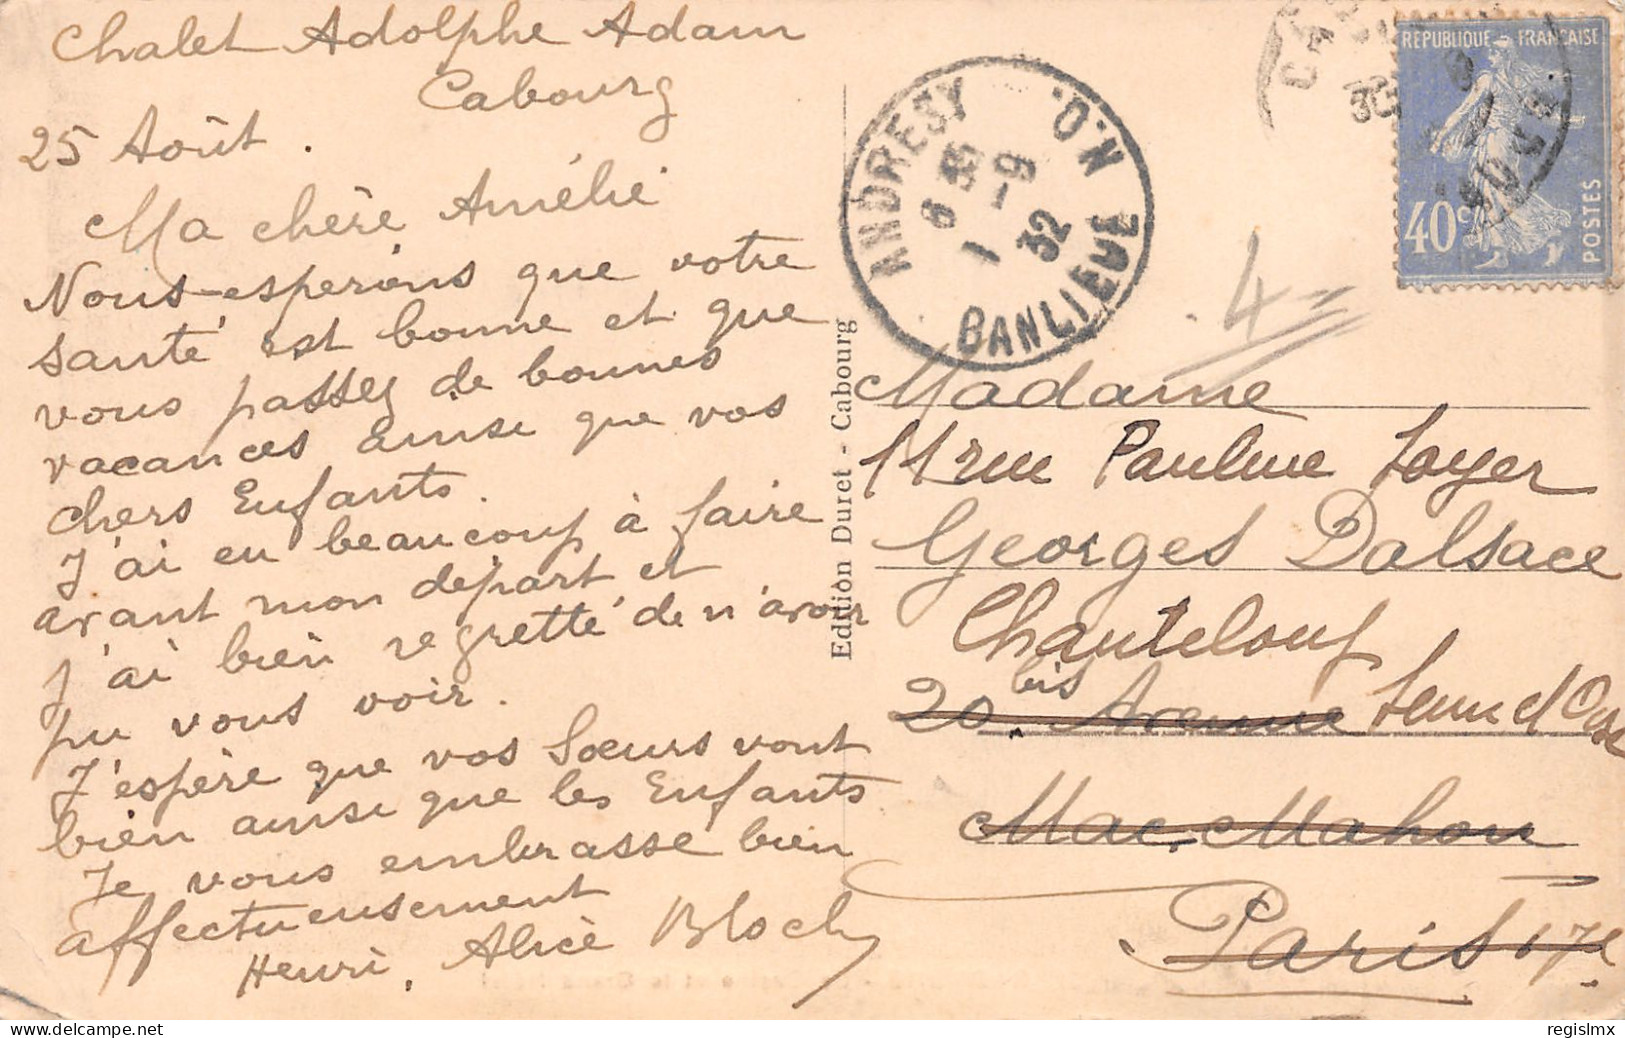 Chalet Adolphe Adam
Cabourg
25 Août.
Ma chère Amélie
Nous esperons que votre
santé est bonne et que
vous passez de bonnes
vacances ainsi que vos
chers Enfants.
J'ai eu beaucoup à faire
avant mon départ et
j'ai bien regretté de n'avoir
pu vous voir.
J'espère que vos Sœurs vont
bien ainsi que les Enfants
Je vous embrasse bien
affectueusement
Henri, Alice Bloch
Edition Duret - Cabourg
ANDRESY
BANLIEUE
N.O.
8 35
1 -9
32
4
RÉPUBLIQUE FRANÇAISE
40c
POSTES
30
Madame
11 rue Pauline
Georges Dalsace
Chanteloup
20 bis Avenue
Mac-Mahon
Paris 17e
regislmx